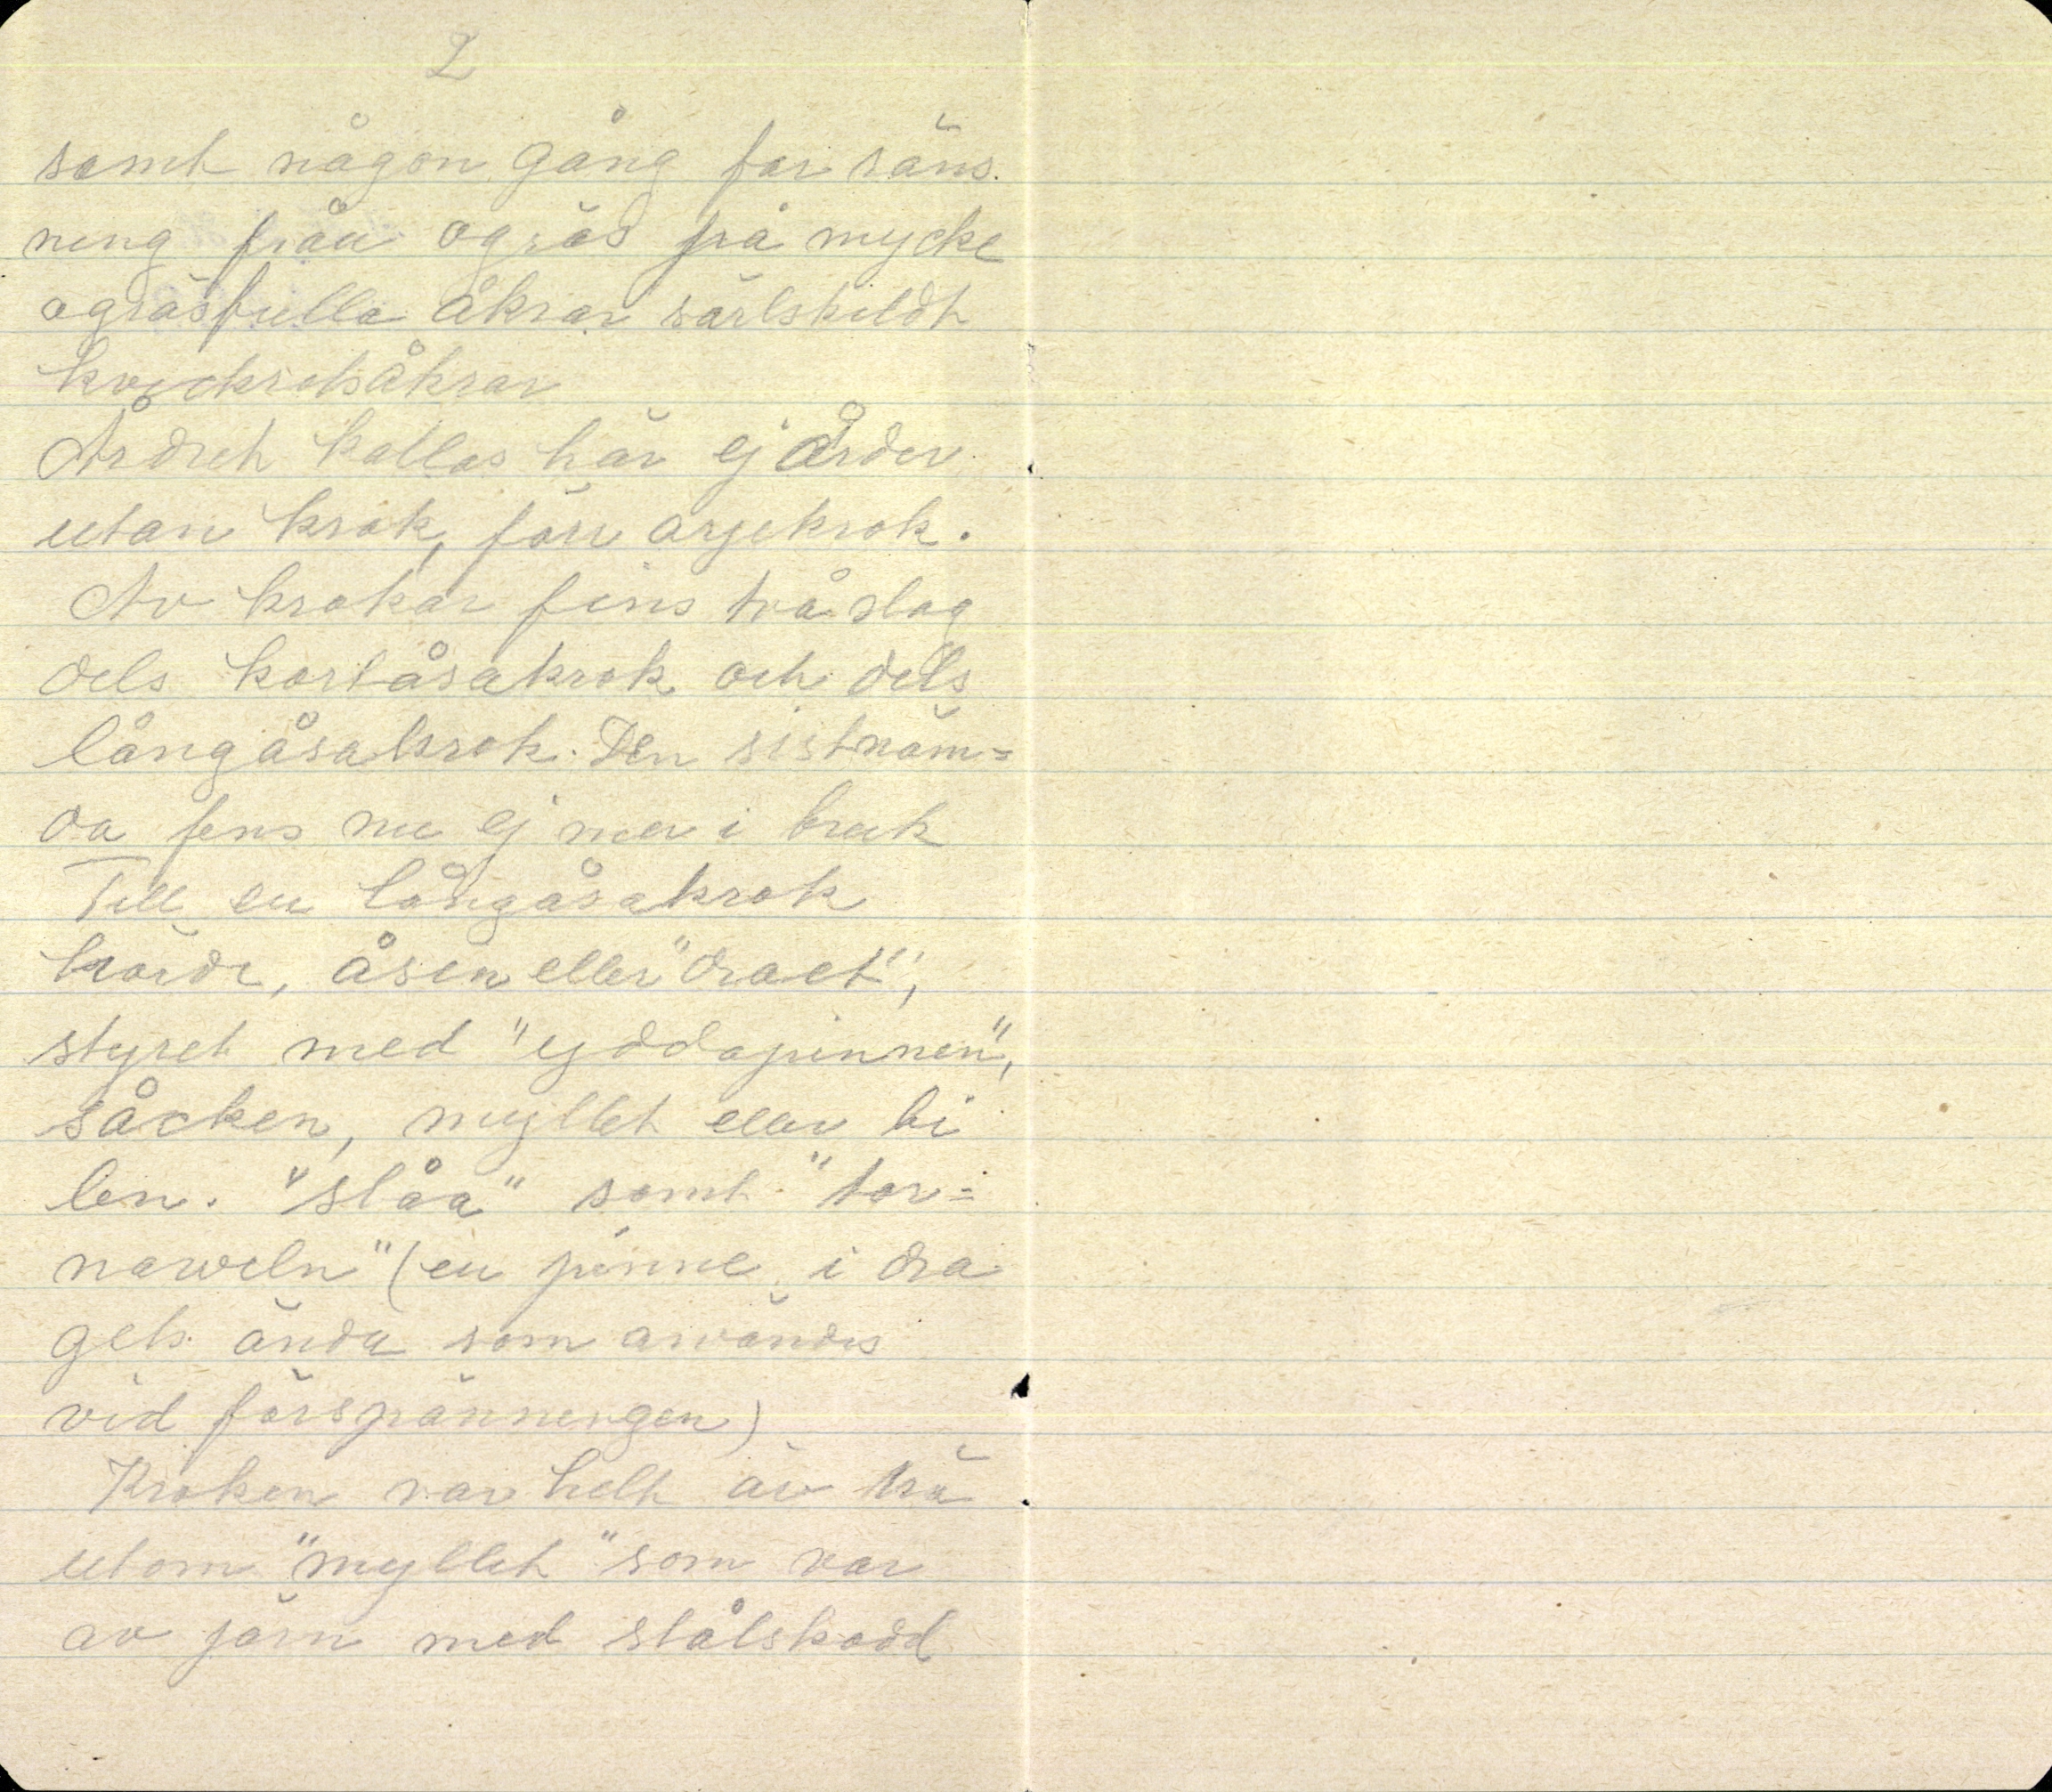 2
samt någon gång för räns
ning från ogräs på mycke
ogräsfulla åkrar särlskildt
kvickrotsåkrar
Årdret kallas här ej årder
utan krok, förr arjekrok.
Av krokar fins två slag
dels kortåsakrok och dels
långåsakrok. Den sistnäm=
da fins nu ej mer i bruk
Till en långåsakrok
hörde, åsen eller "draet",
styret med "yddapinnen",
såcken, myllet eller bi
len. "slåa" samt "tor=
naweln" (en pinne i dra
gets ända som användes
vid förspänningen)
Kroken var helt av trä
utom "myllet" som var
av järn med stålskodd